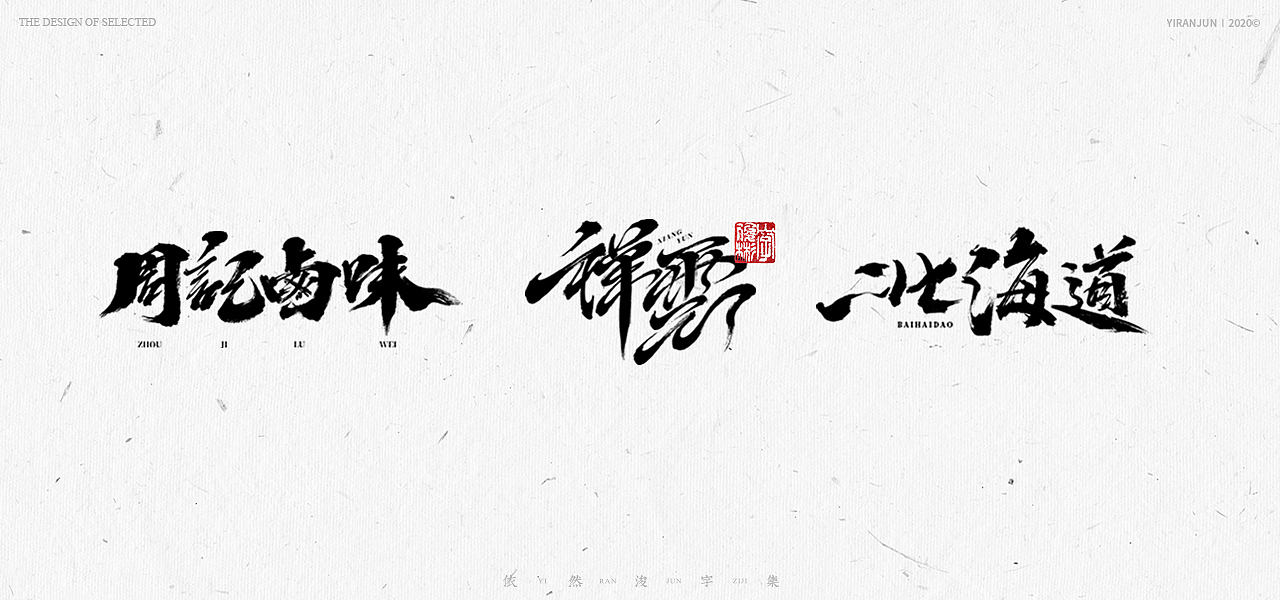 THE DESIGN OF SELECTED
YIRANJUN | 2020©
周記鹵味
ZHOU JI LU WEI
祥雲
XIANG YUN
北海道
BAIHAIDAO
依 YI 然 RAN 浚 JUN 字 ZIJI 集